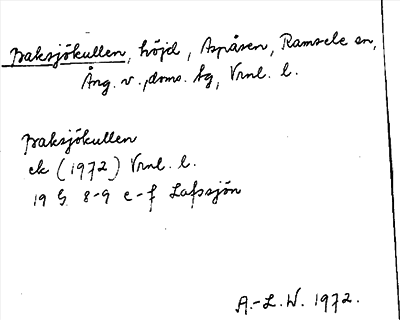 Baksjökullen, höjd, Aspåsen, Ramsele sn,
Ång. v., doms. tg, Vrnl. l.
Baksjökullen
ek (1972) Vrnl. l.
19 G 8-9 e-f Lafssjön
A.-L. W. 1972.